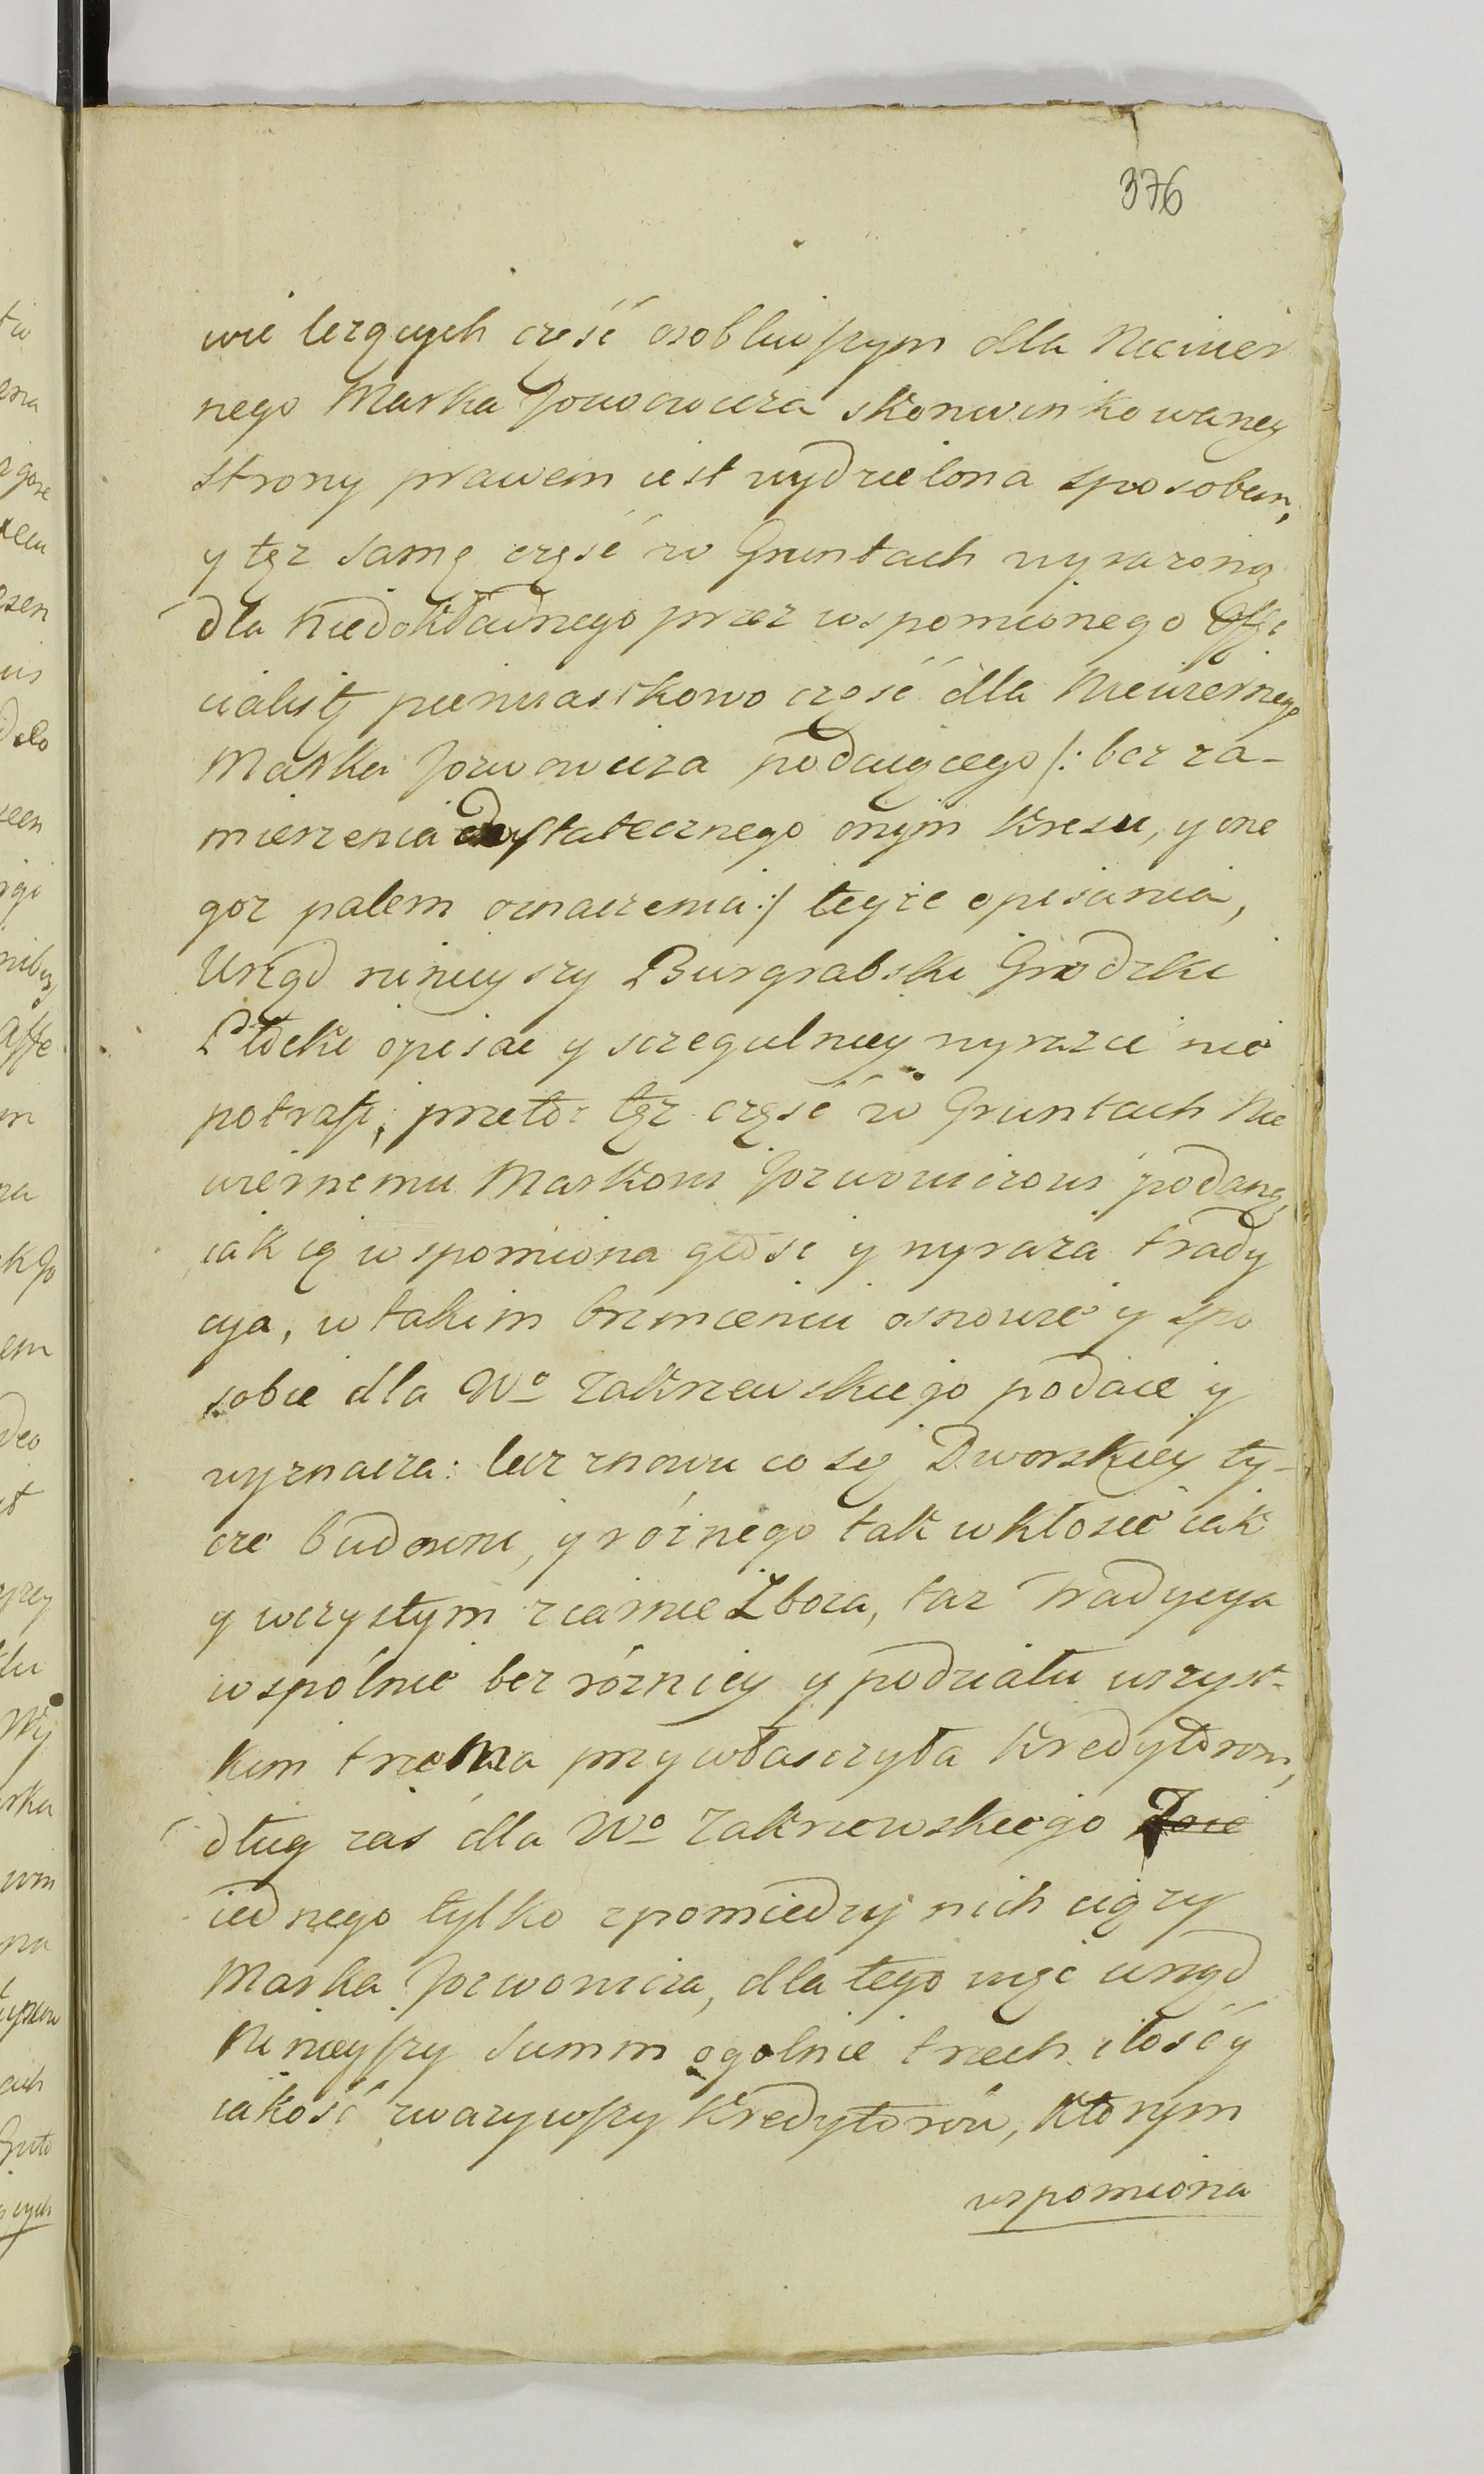 376
wie lezących część osobliwszym dla Niewier
nego Marka Jozwowicza skonwinkowaney
strony prawem iest wydzielona sposobem,
y tęz samę część w Gruntach wyrazoną
dla niedokładnego przez wspomionego Offi
cialistę pierwiastkowo część dla Niewiernego
Marka Jozwowicza podaiącego /: bez za-
mierzenia dostatecznego onym kresu, y one
goz palem oznaczenia :/ teyże opisania,
Urząd ninieyszy Burgrabski Grodzki
Płocki opisać y szczegulniey wyrazić nie
potrafi, przetoz tęz część w Gruntach Nie
wiernemu Markowi Jozwowiczowi podaną,
iak ią wspomiona głosi y wyraża trady
cya, w takim brzmieniu osnowie y spo
sobie dla Wo Zakrzewskiego podaie y
wyznacza: lecz znowu co się Dworskiey ty-
cze budowni, y różnego tak w kłosie iak
y wczystym ziarnie Zboza, taz tradycya
wspólnie bez różnicy y podziału wszyst-
kim trzoma przywłaszczyła Kredytorom,
dług zaś dla Wo Zakrzewskiego
iednego tylko zpomiedzy nich ciązy
Marka Jozwowicza, dla tego więc urząd
Ninieyszy Summ ogolnie trzech ilość y
iakość zwazywszy Kredytorów, którym
wspomiona